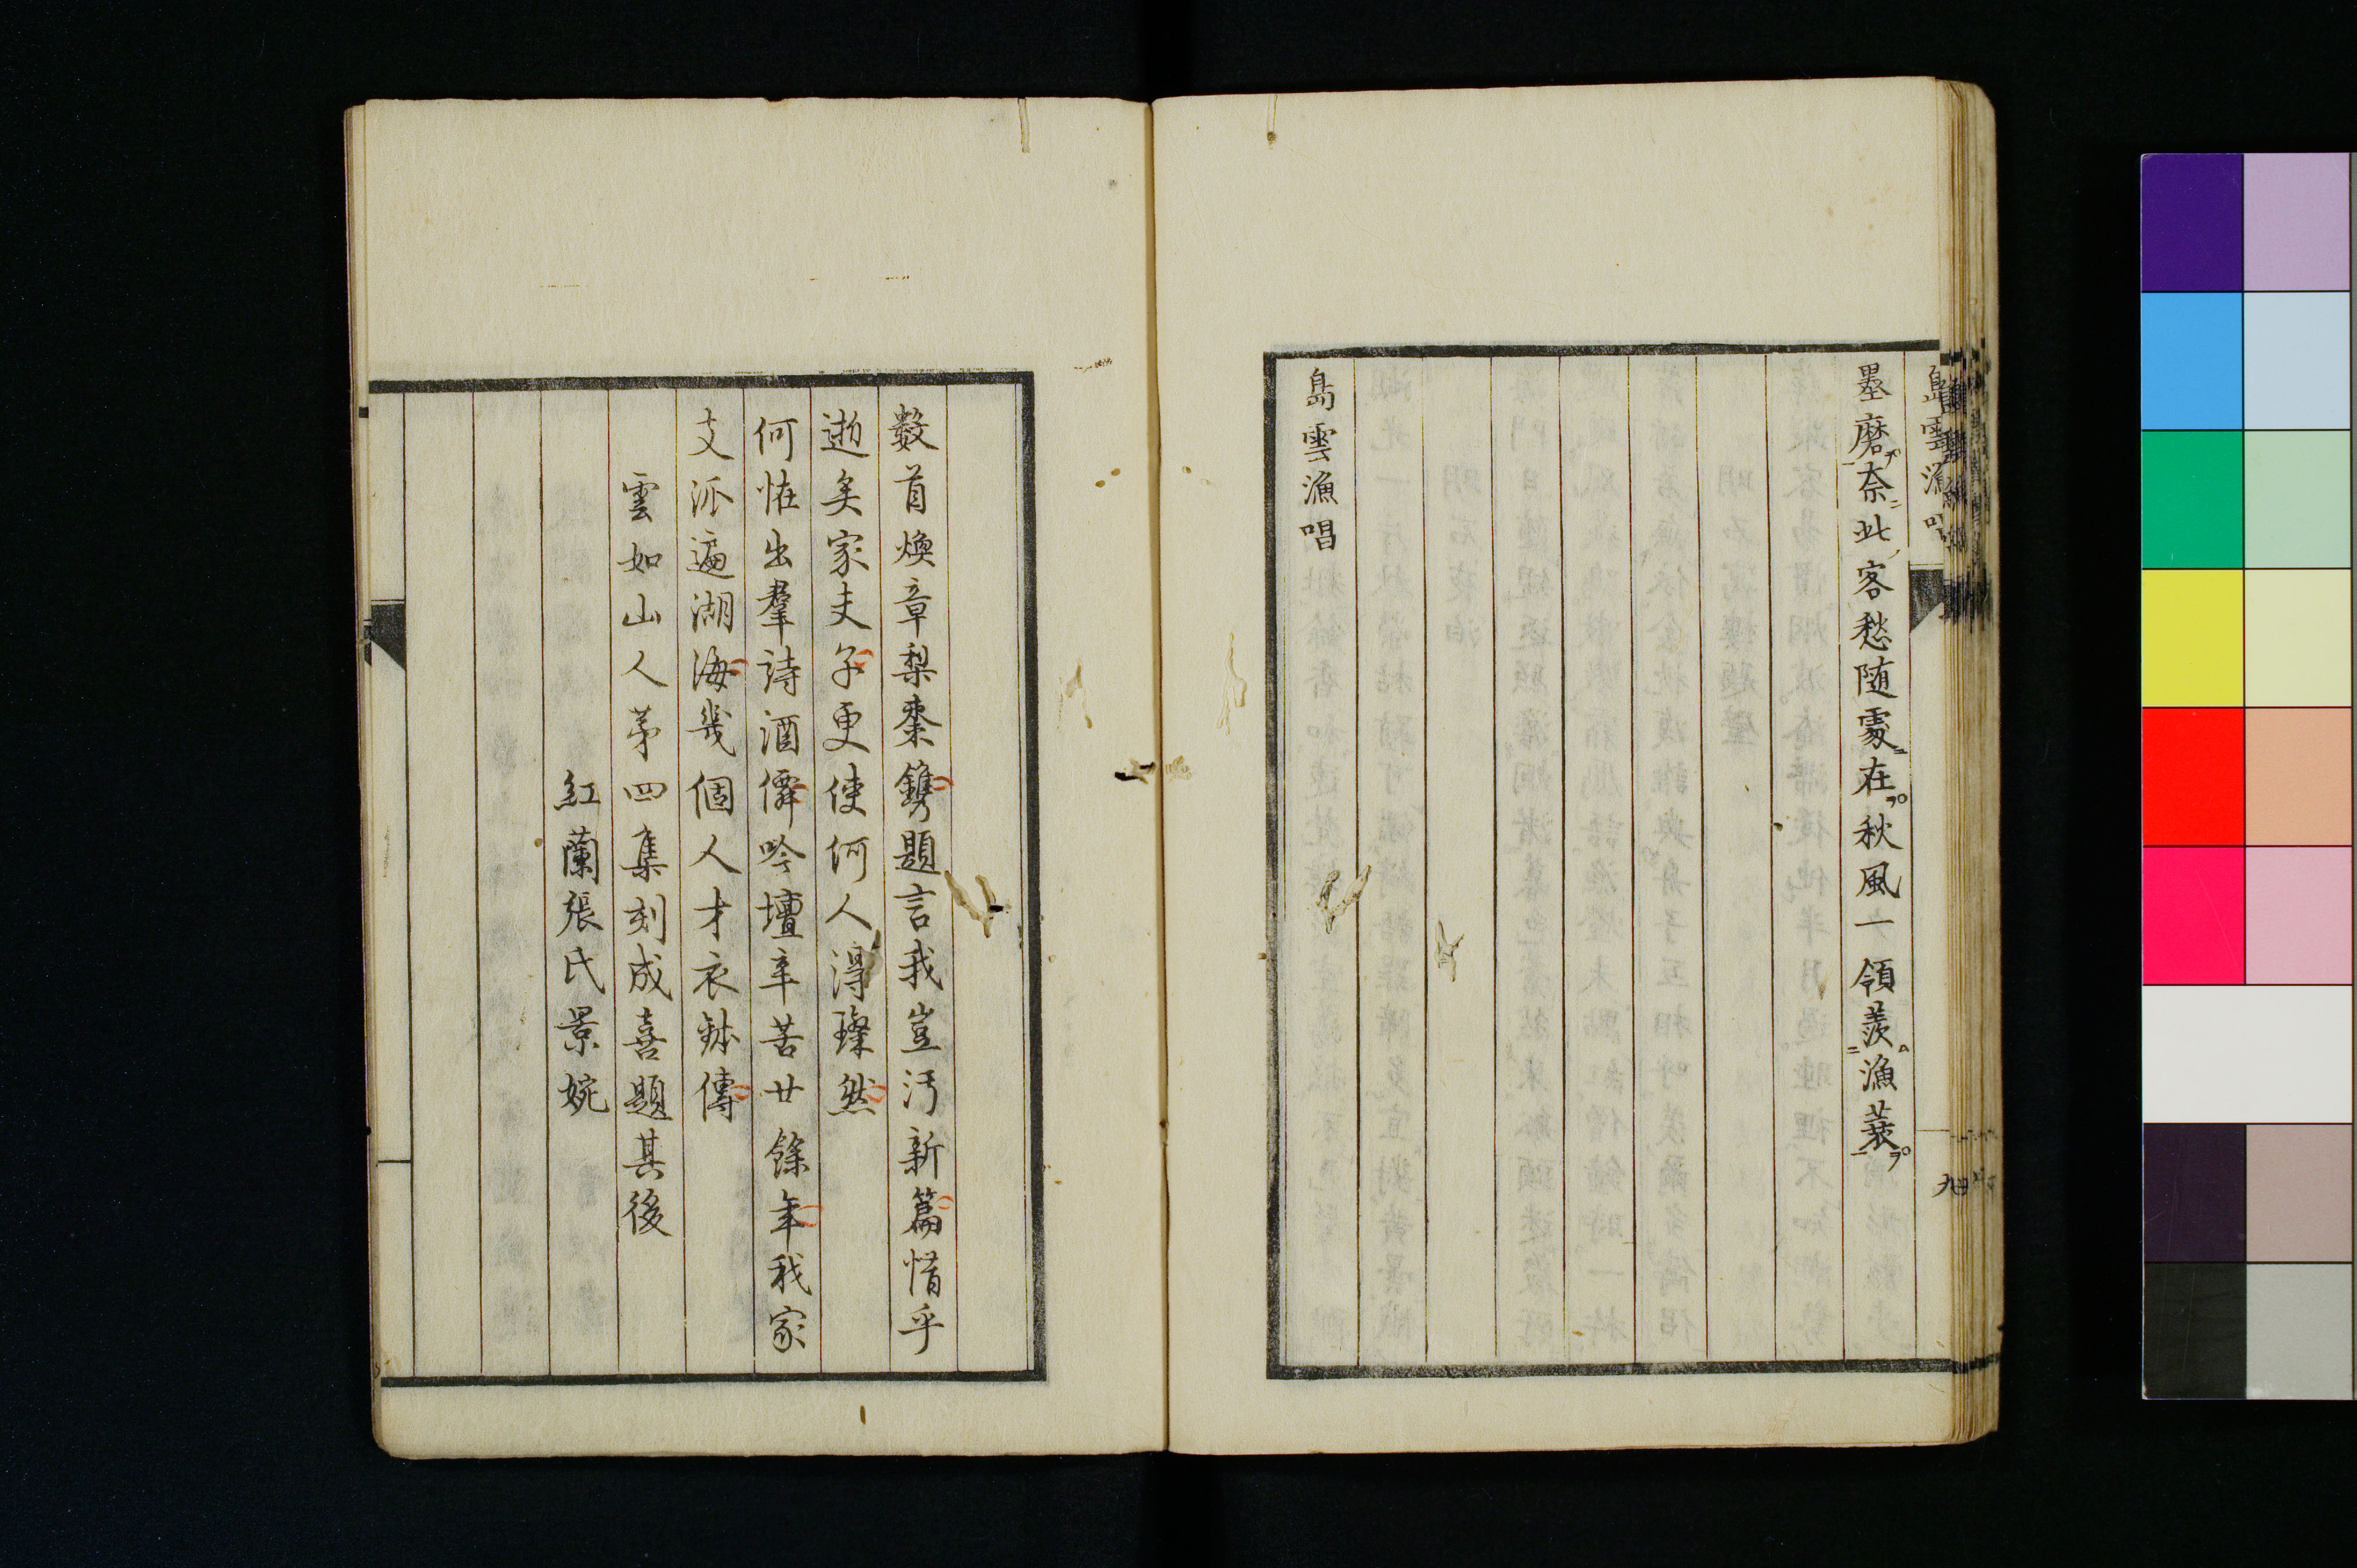 墨磨奈此客愁随處在秋風一領羨漁蓑
島雲漁唱
數首煥章梨棗鐫題言我豈汚新篇惜乎
逝矣家夫子更使何人得璨然
何怪出羣詩酒僊吟壇辛苦廿餘年我家
支派遍湖海幾個人才衣鉢傳
雲如山人第四集刻成喜題其後
紅蘭張氏景婉